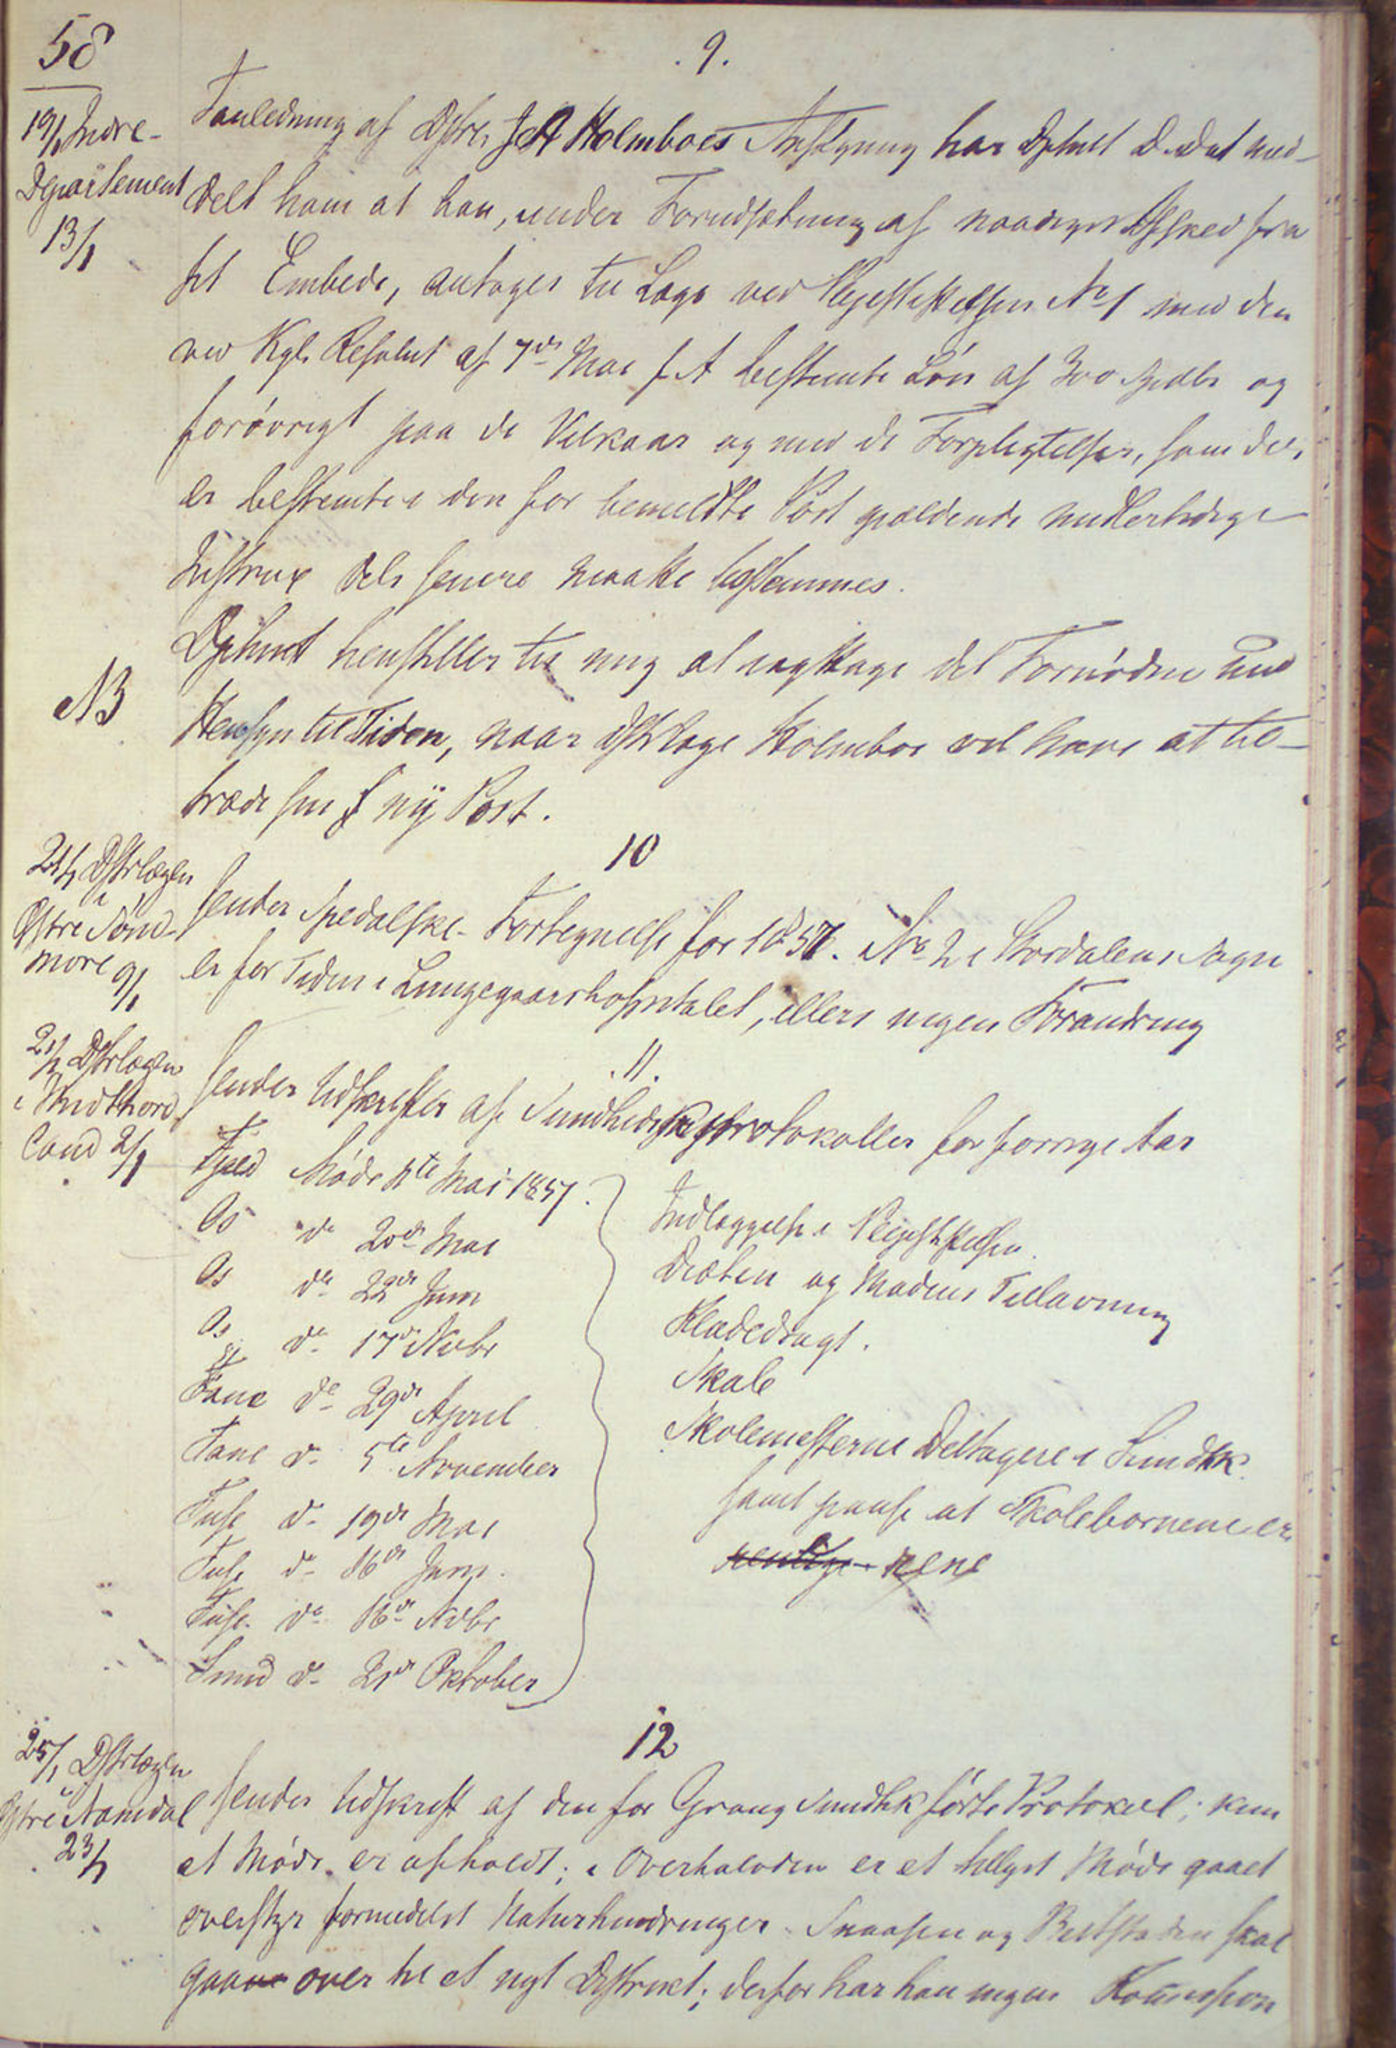 58
9.
19/1 Indre-
Departement
13/1
I anledning af Dstrl. J A Holmboes Ansøgning har Dptmtt D. Dat med-
delt ham at han, under Forudsætning af naadigst Afsked fra
sit Embede, antages til Læge ved Plejestiftelsen No 1 med den
ved Kgl. Resolut af 7de Mai f A bestemte Løn af 300 Spdlr og
forøvrigt paa de Vilkaar og med de Forpligtelser, som dels
er bestemte i den for bemeldte Post gjældende midlertidige
Instrux dels senere maatte bestemmes.
NB
Dptmtt henstiller til mig at iagttage det Fornødne med
Hensyn til Tiden, naar Dstrlæge Holmboe vil have at til-
træde sin ny Post.
10
21/1 Dstrlægen
i
Østre Sønd-
møre 9/1
Sender Spedalske-Fortegnelse for 1857. No 2 i Stordalens Sogn
er for Tiden i Lungegaardshospitalet, ellers ingen Forandring
11.
21/1 Dstrlægen
i Midthord
land 2/1
Sender Udskrifter af Sundhedskprotokoller for forrige Aar
Fjeld Møde 4te Mai 1857.
Os do 20de Mai
Os do 22de Juni
Os do 17de Novbr
Fane do 29de April
Fane do 5te November
Fuse do 19de Mai
Fuse do 16de Juni.
Fuse do 16de Novbr
Sund do 21de Oktober
Indlæggelse i Plejestiftelsen.
Diæten og Madens Tillavning
Klædedragt.
Skab
Skolemesterne Deltagere i Sundhk.
samt paase at Skolebørnene er
renlige rene
12
25/1 Dstrlægen
i
Østre Namdal
23/1
Sender Udskrift af den for Grong Sundhk førte Protokol; kun
et Møde er afholdt; i Overhalvden er et tillyst Møde gaaet
overstyr formedelst Naturhindringer. Snaasen og Beitstaden skal
gaa over til et nyt Distrikt; derfor har han ingen Korrespon